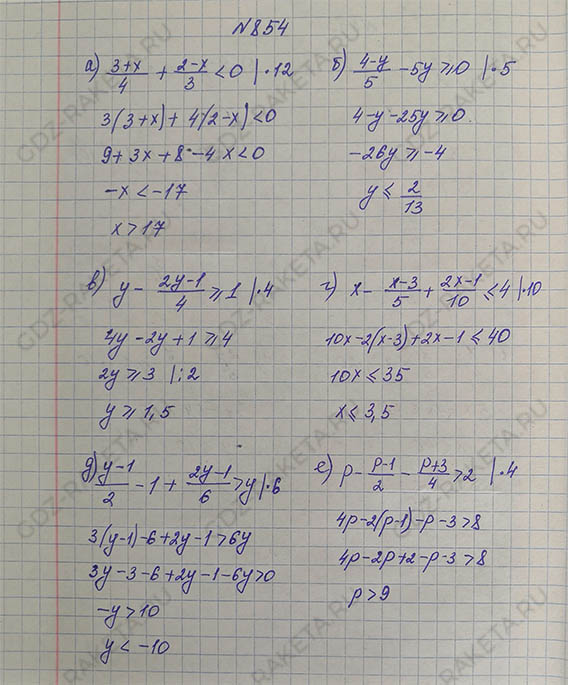 №854
а) (3+x)/4 + (2-x)/3 < 0 |·12
3(3+x)+4(2-x)<0
9+3x+8-4x<0
-x<-17
x>17
б) (4-y)/5 - 5y ≥ 0 |·5
4-y-25y≥0
-26y≥-4
y ≤ 2/13
в) y - (2y-1)/4 ≥ 1 |·4
4y-2y+1≥4
2y≥3 |:2
y≥1,5
г) x - (x-3)/5 + (2x-1)/10 ≤ 4 |·10
10x-2(x-3)+2x-1≤40
10x≤35
x≤3,5
д) (y-1)/2 - 1 + (2y-1)/6 > y |·6
3(y-1)-6+2y-1>6y
3y-3-6+2y-1-6y>0
-y>10
y<-10
е) p - (p-1)/2 - (p+3)/4 > 2 |·4
4p-2(p-1)-p-3>8
4p-2p+2-p-3>8
p>9
GDZ-RAKETA.RU